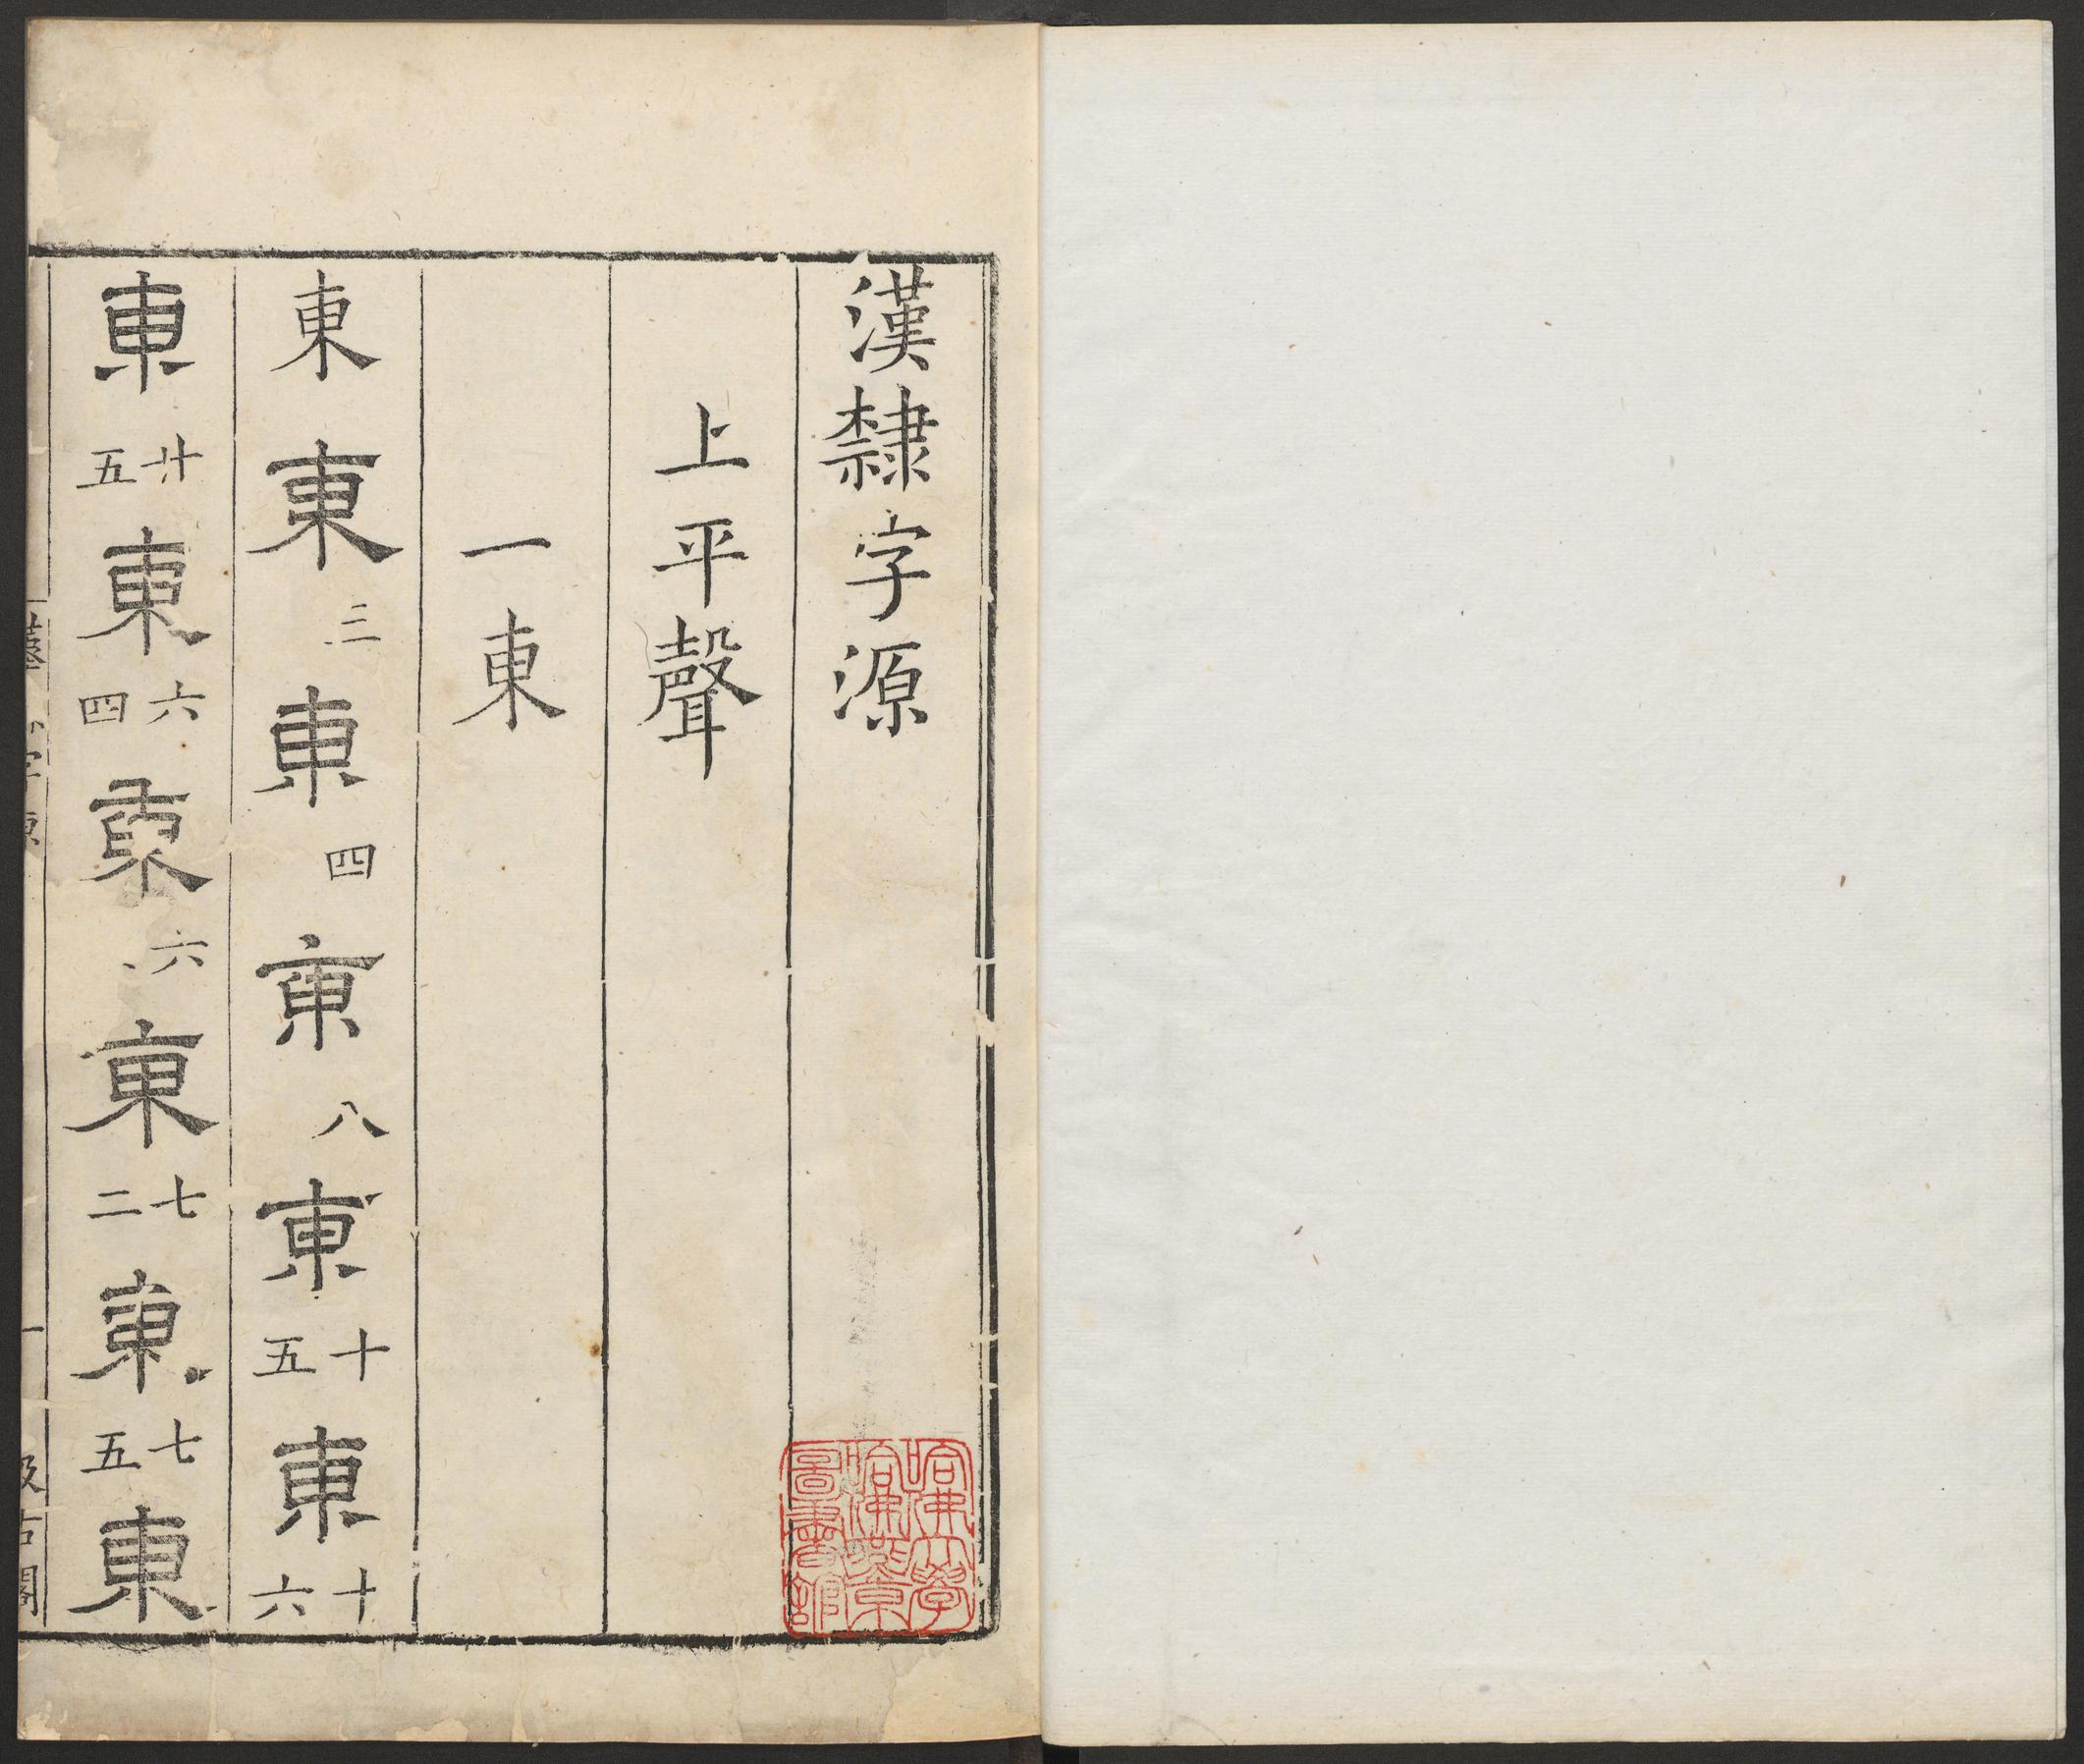 漢隸字源
上平聲
一東
東東三東四東八東十五東十六
東廿五東六四東六東七二東七五東
漢隸字源
一
汲古閣
哈佛大學
哈佛燕京
圖書館